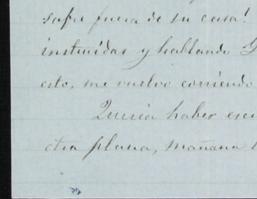 safe fuera de su casa!
instruidas y hablando
esto, me vuelvo corriendo
Queria haber
otra plana, mañana